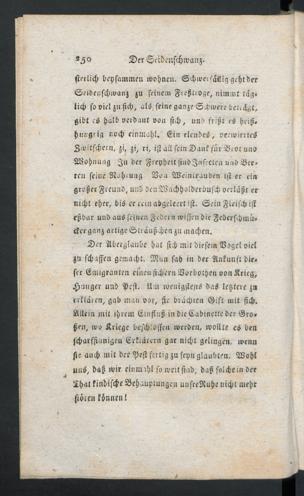 250 Der Seidenschwanz.
sterlich beysammen wohnen. Schwerfällig geht der
Seidenschwanz zu seinem Freßtroge, nimmt täg-
lich so viel zu sich, als seine ganze Schwere beträgt,
gibt es halb verdaut von sich, und frißt es heiß-
hungrig noch einmahl. Ein elendes, verwirrtes
Zwitschern, zi, zi, ri, ist all sein Dank für Brot und
Wohnung. In der Freyheit sind Insecten und Bee-
ren seine Nahrung. Von Weintrauben ist er ein
großer Freund, und den Wachholderbusch verläßt er
nicht eher, bis er rein abgeleert ist. Sein Fleisch ist
eßbar und aus seinen Federn wissen die Federschmü-
cker ganz artige Sträußchen zu machen.
Der Aberglaube hat sich mit diesem Vogel viel
zu schaffen gemacht. Man sah in der Ankunft die-
ser Emigranten einen sichern Vorbothen von Krieg,
Hunger und Pest. Um wenigstens das letztere zu
erklären, gab man vor, sie brächten Gift mit sich.
Allein mit ihrem Einfluß in die Cabinette der Gro-
ßen, wo Kriege beschlossen werden, wollte es den
scharfsinnigen Erklärern gar nicht gelingen, wenn
sie auch mit der Pest fertig zu seyn glaubten. Wohl
uns, daß wir einmahl so weit sind, daß solche in der
That kindische Behauptungen unsre Ruhe nicht mehr
stören können!